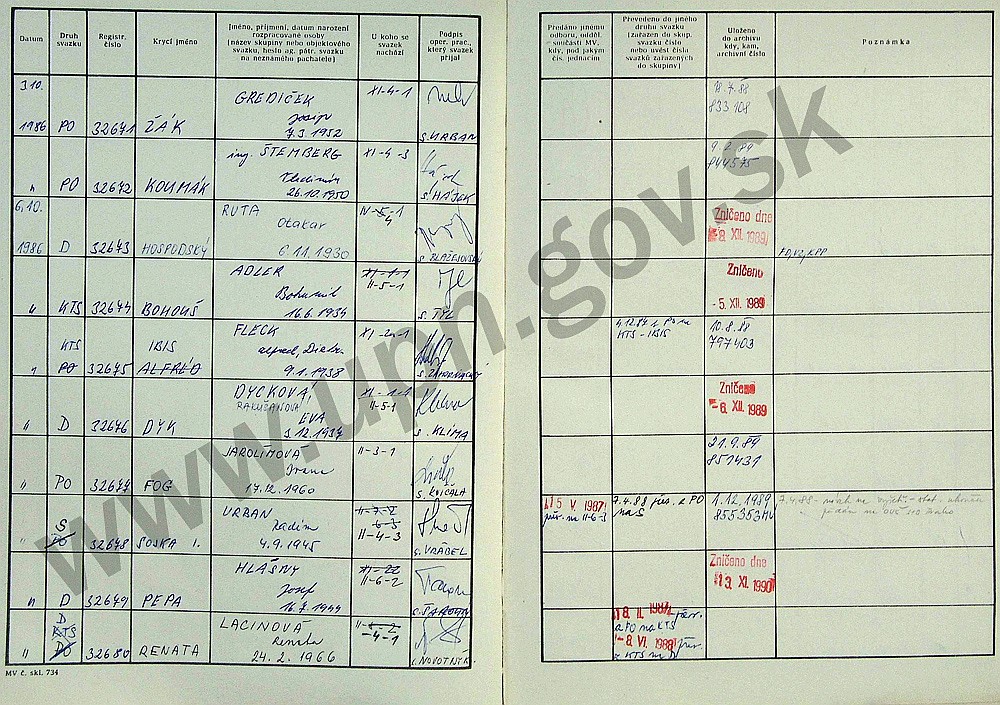 Datum
Druh svazku
Registr. číslo
Krycí jméno
Jméno, příjmení, datum narození
rozpracované osoby
(název skupiny nebo objektového
svazku, heslo ag. pátr. svazku
na neznámého pachatele)
U koho se svazek nachází
Podpis
oper. prac.,
který svazek
přijal
Předáno jinému
odboru, odděl.
součásti MV,
kdy, pod jakým
čís. jednacím
Převedeno do jiného
druhu svazku
(zařazen do skup.
svazku číslo
nebo uvést čísla
svazků zařazených
do skupiny)
Uloženo
do archivu
kdy, kam,
archivní číslo
Poznámka
3.10.
1986 PO 32671 ŽÁK
GREDIČEK
Josip
7.3.1952
XI-4-1
s. URBAN
18.7.88
833 108
" PO 32672 KOUMÁK
ing. ŠTEMBERG
Vladimír
26.10.1950
XI-4-3
s. HÁJEK
9.2.89
844575
6.10.
1986 D 32673 HOSPODSKÝ
RUTA
Otakar
6.11.1930
IV-5-1
4
Zničeno dne
-8. XII. 1989
" KTS 32674 BOHOUŠ
ADLER
Bohumil
16.6.1934
XI-1-1
II-5-1
s. TYL
Zničeno
-5. XII. 1989
KTS IBIS
" PO 32675 ALFRÉD
FLECK
Alfred, Dieter
9.1.1938
KTS - IBIS
10.8.88
797403
" D 32676 DYK
DYCKOVÁ,
RAKUŠANOVÁ
EVA
XI-1-1
II-5-1
s. KLIMA
Zničeno
-6. XII. 1989
" PO 32677 FOG
JAROLÍMOVÁ
Ivana
17.12.1960
II-3-1
21.9.89
851431
S
" PO 32678 SOJKA 1.
URBAN
Radim
4.9.1945
II-7-2
6-3
II-4-3
s. VRÁBEL
15 V. 1987
7.4.88 přev. z PO
na S
1.12.1989
855353 MV
" D 32679 PEPA
HLÁSNÝ
Josef
16.7.1944
XI-22
II-6-2
Zničeno dne
13. XI. 1990
D
KTS
" PO 32680 RENATA
LACINOVÁ
Renata
24.2.1966
-4-1
s. NOVOTNÝ
a PO na KTS
-8. VI. 1988 přev.
z KTS na D
MV č. skl. 734
www.upn.gov.sk